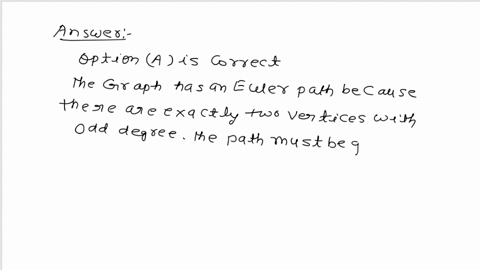 Answer:-
Option (A) is Correct
The Graph has an Euler path because
there are exactly two vertices with
Odd degree. The path must be g